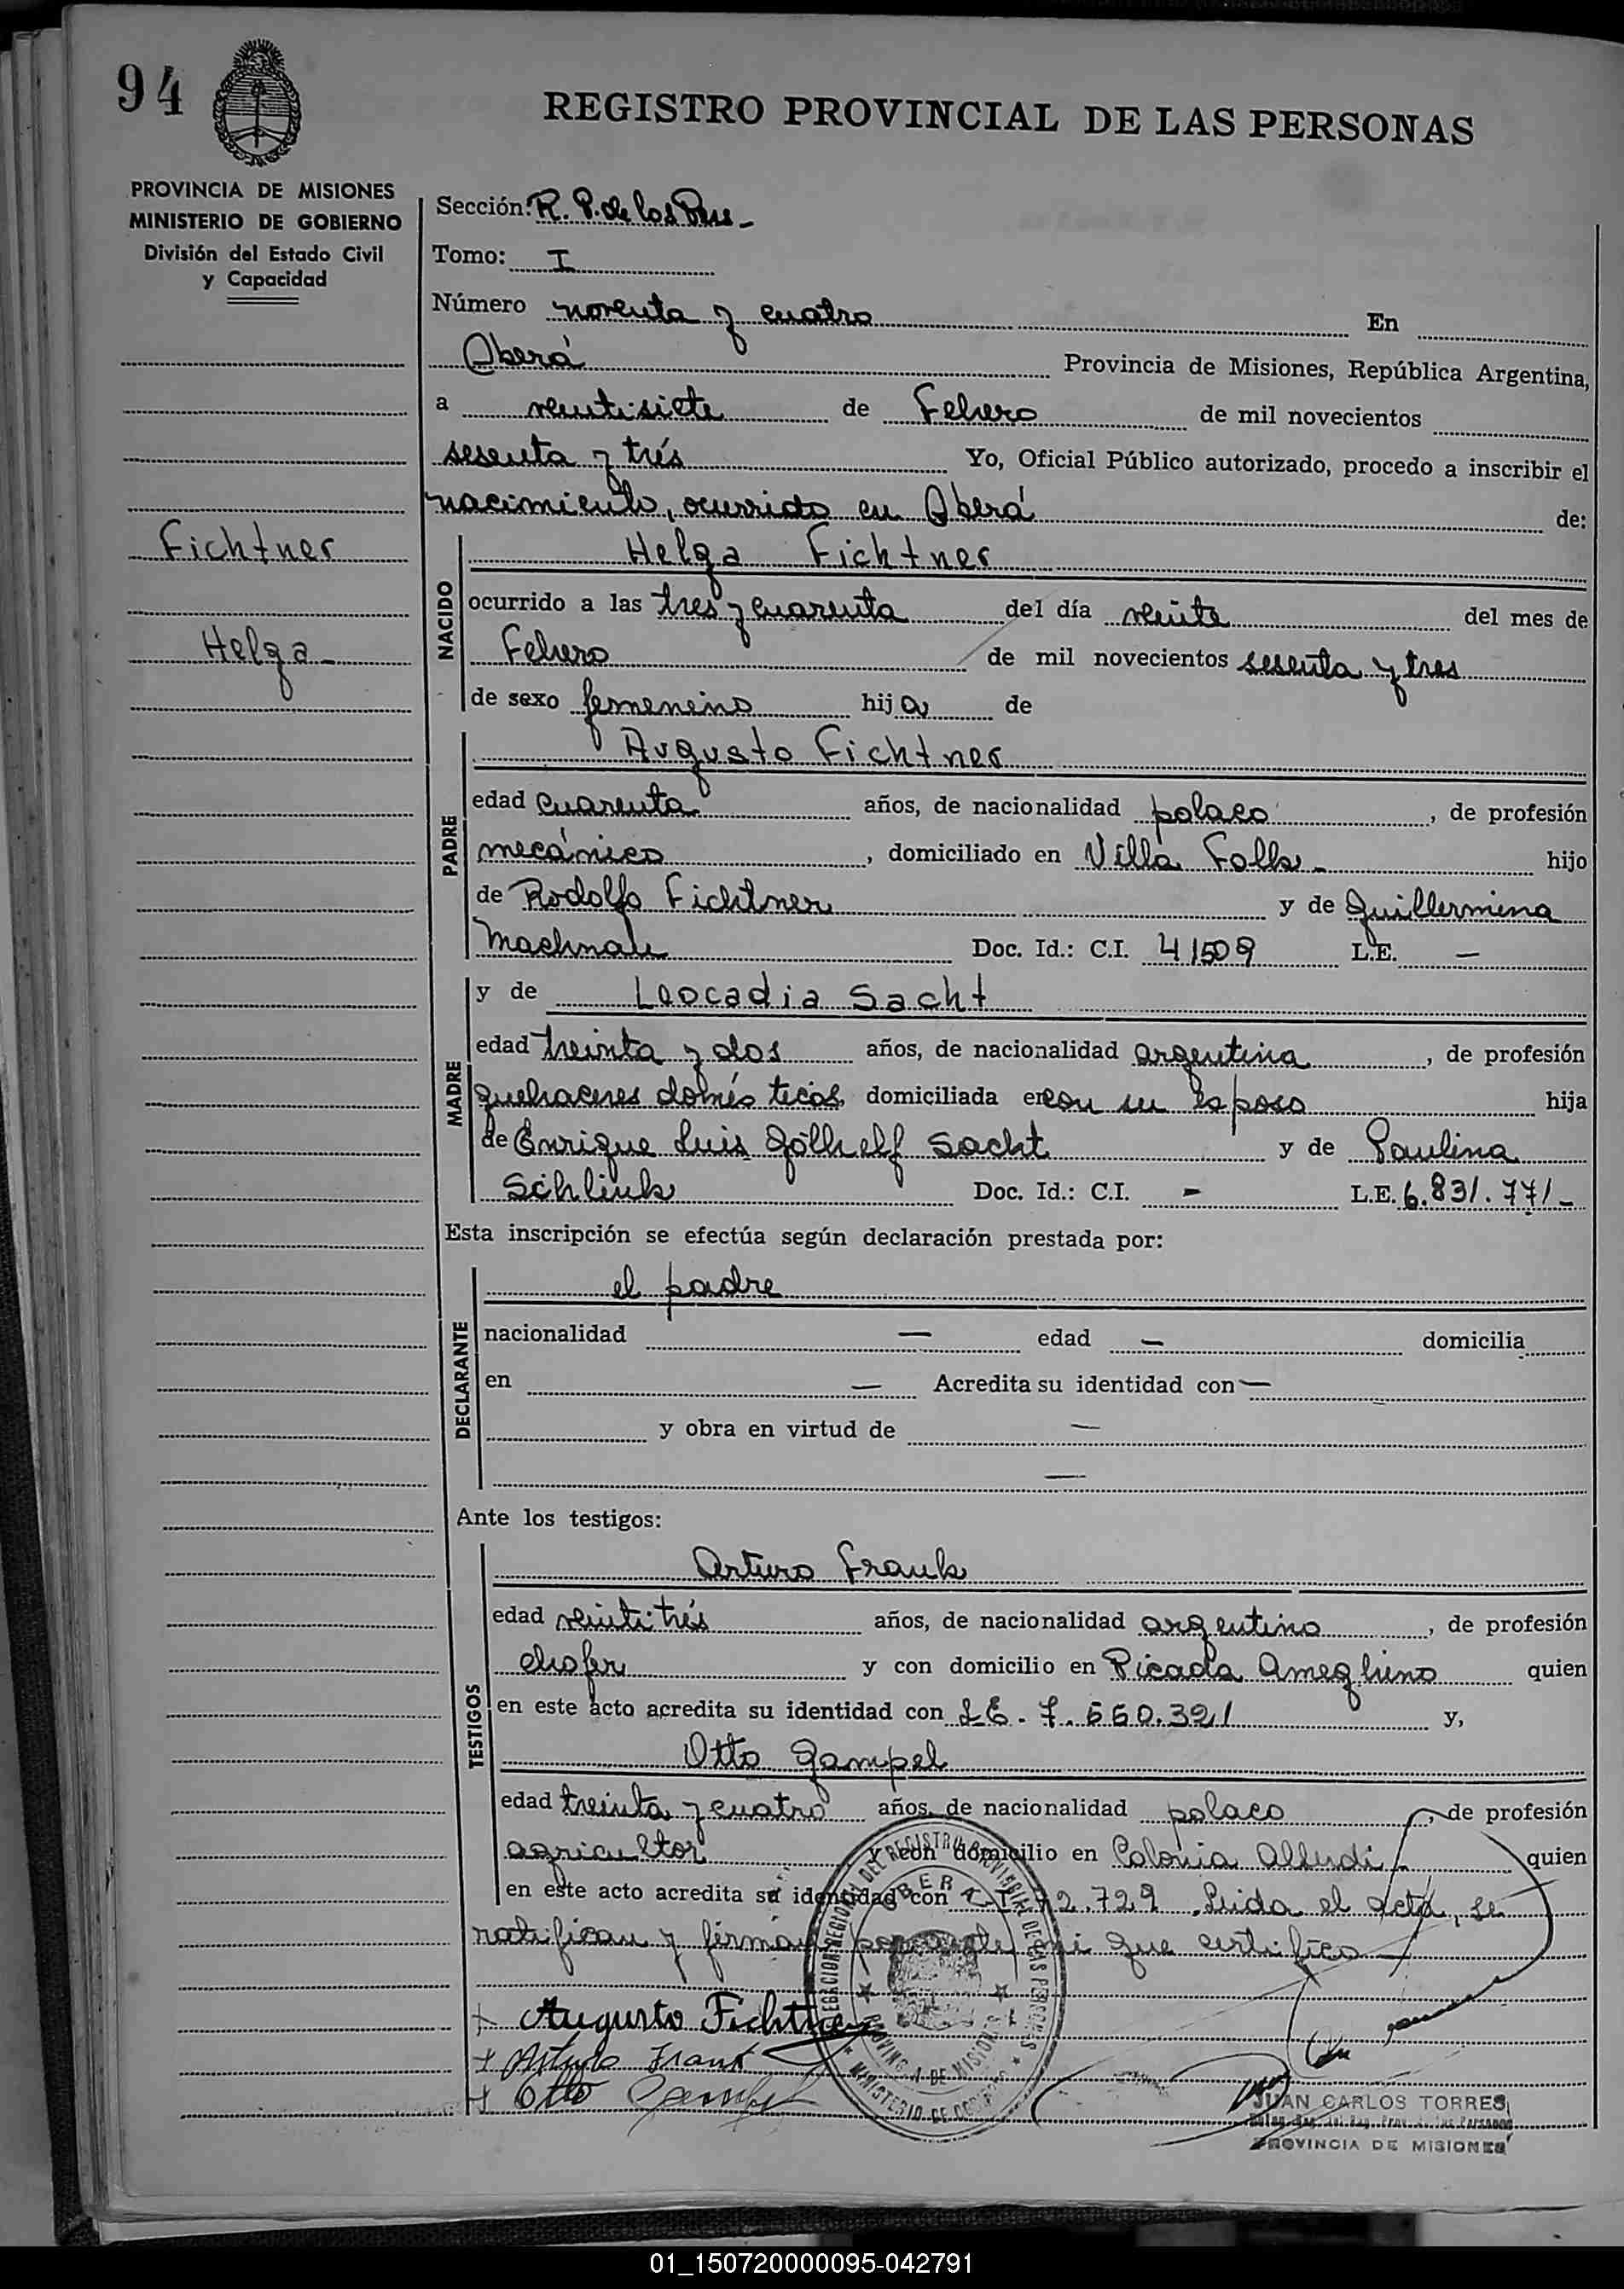 94
REGISTRO PROVINCIAL DE LAS PERSONAS
PROVINCIA DE MISIONES
MINISTERIO DE GOBIERNO
División del Estado Civil
y Capacidad
Sección: R. P. de las Pers -
Tomo: I
Número noventa y cuatro En
Oberá Provincia de Misiones, República Argentina,
a veintisiete de Febrero de mil novecientos
sesenta y trés Yo, Oficial Público autorizado, procedo a inscribir el
nacimiento, ocurrido en Oberá de:
Fichtner
Helga -
NACIDO
Helga Fichtner
ocurrido a las tres y cuarenta del día veinte del mes de
Febrero de mil novecientos sesenta y tres
de sexo femenino hija de
PADRE
Augusto Fichtner
edad cuarenta años, de nacionalidad polaco, de profesión
mecánico, domiciliado en Villa Falk - hijo
de Rodolfo Fichtner y de Guillermina
Doc. Id.: C.I. 41509 L.E. —
MADRE
y de Leocadia Sacht
edad treinta y dos años, de nacionalidad argentina, de profesión
quehaceres domésticos, domiciliada en con su esposo hija
de Enrique Luis Golhelf Sacht y de Paulina
Schlink Doc. Id.: C.I. - L.E. 6.831.771 -
Esta inscripción se efectúa según declaración prestada por:
DECLARANTE
el padre
nacionalidad — edad — domicilia
en — Acredita su identidad con —
y obra en virtud de —
—
Ante los testigos:
TESTIGOS
Arturo Frank
edad veintitrés años, de nacionalidad argentino, de profesión
chofer y con domicilio en Picada Ameghino quien
en este acto acredita su identidad con LE. 7.560.321 y,
Otto Gampel
edad treinta y cuatro años, de nacionalidad polaco, de profesión
agricultor y con domicilio en Colonia Alberdi - quien
en este acto acredita su identidad con 2.729. Leida el acta, se
ratifican y firman por ante mi que certifico —
+ Augusto Fichtner
+ Arturo Frank
+ Otto Gampel
DELEGACION REGIONAL DEL REGISTRO PROVINCIAL DE LAS PERSONAS
OBERA
PROVINCIA DE MISIONES
MINISTERIO DE GOBIERNO
JUAN CARLOS TORRES
PROVINCIA DE MISIONES
01_150720000095-042791